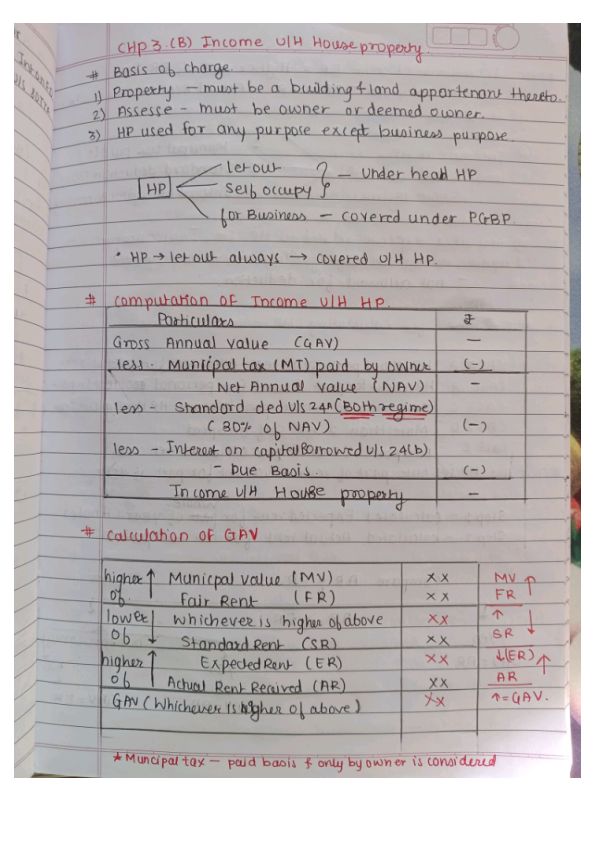 CHP 3.(B) Income U/H House property.
# Basis of charge.
1) Property - must be a building & land appartenant thereto.
2) Assesse - must be owner or deemed owner.
3) HP used for any purpose except business purpose.
let out
HP self occupy } - under head HP
for Business - covered under PGBP.
• HP → let out always → covered U/H HP.
# computation of Income U/H HP.
Particulars ₹
Gross Annual value (GAV) —
less - Municipal tax (MT) paid by owner (-)
Net Annual value (NAV) -
less - standard ded U/S 24A (Both regime)
( 30% of NAV) (-)
less - Interest on capital Borrowed U/S 24(b)
- Due Basis. (-)
Income U/H House property -
# calculation OF GAV
higher ↑ Municpal value (MV) xx MV ↑
of Fair Rent (FR) xx FR
lower ↓ whichever is higher of above xx ↑ ↓
of Standard Rent (SR) xx SR
higher ↑ Expected Rent (ER) xx ↓(ER) ↑
of Actual Rent Received (AR) xx AR
GAV (Whichever is higher of above) xx ↑=GAV.
★ Muncipal tax — paid basis & only by owner is considered